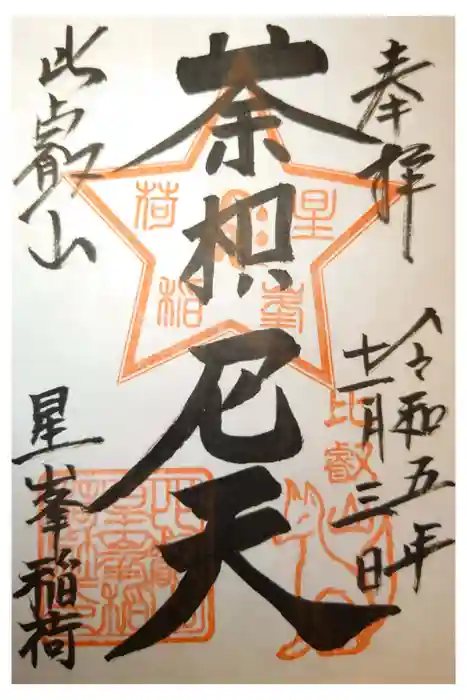 奉拝
令和五年
十一月三日
荼枳尼天
比叡山
星峯稲荷
星峯
稲荷
比叡山